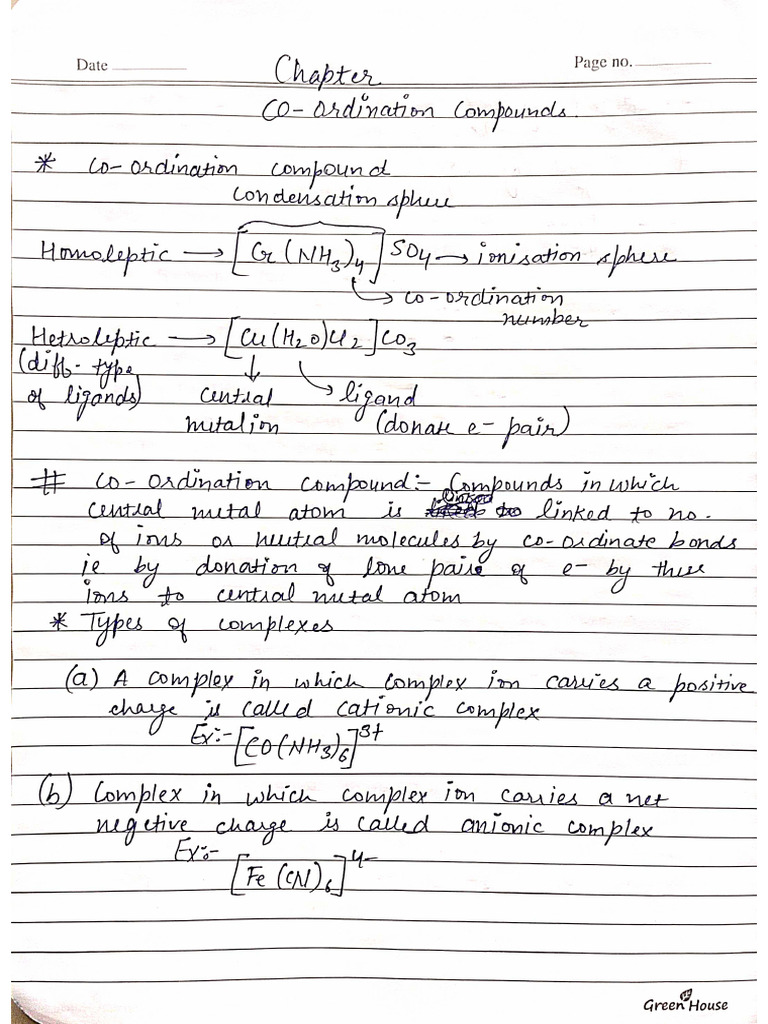 Date
Page no.
Chapter
CO-Ordination Compounds.
* Co-ordination compound
Condensation sphere
Homoleptic → [Cr(NH3)4]SO4 → ionisation sphere
→ co-ordination
number
Hetroleptic → [Cu(H2O)Cl2]CO3
(diff. type
of ligands)
central
metal ion
ligand
(donate e- pair)
# Co-ordination compound:- Compounds in which
central metal atom is linked to no.
of ions or neutral molecules by co-ordinate bonds
ie by donation of lone pairs of e- by these
ions to central metal atom
* Types of complexes
(a) A complex in which complex ion carries a positive
charge is called cationic complex
Ex:- [CO(NH3)6]3+
(b) Complex in which complex ion carries a net
negetive charge is called anionic complex
Ex:-
[Fe(CN)6]4-
Green House